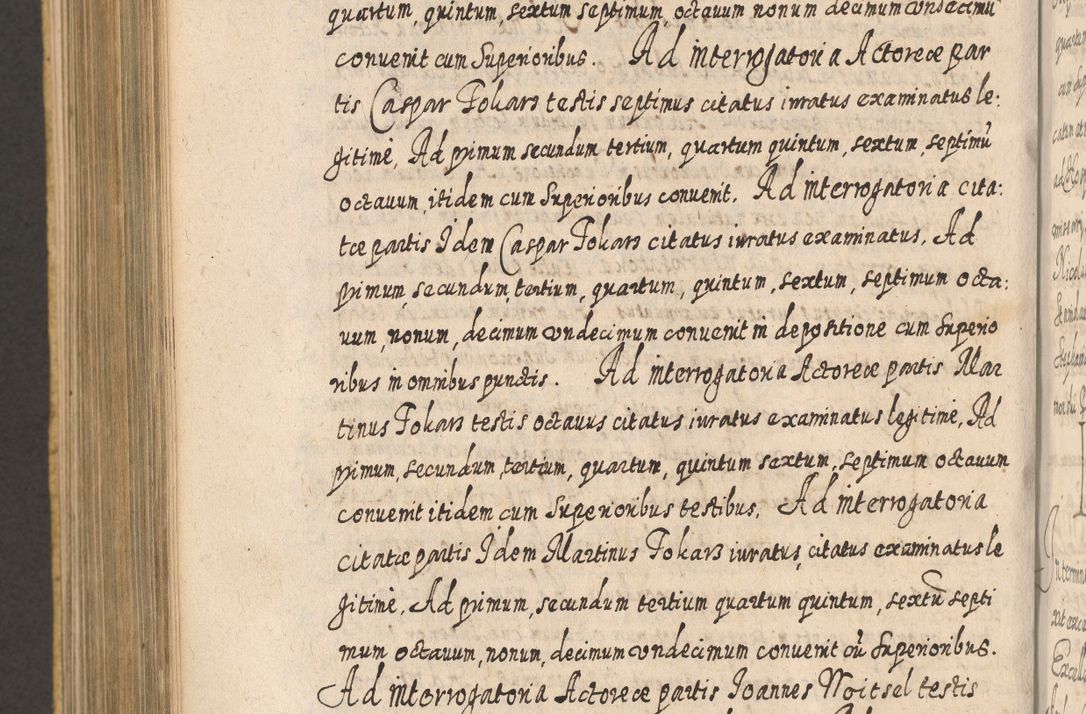 quartum, quintum, sextum septimum, octauum nonum decimum vndecimū
conuenit cum Superioribus. Ad interrogatoria Actoreæ par
tis Caspar Fokars testis septimus citatus iuratus examinatus le:
gitimè, Ad primum secundum tertium, quartum quintum, sextum, septimū
octauum, itidem cum Superioribus conuenit. Ad interrogatoria cita:
tæ partis Idem Caspar Fokars citatus iuratus examinatus, Ad
primum secundum, tertium, quartum, quintum, sextum, septimum octa:
uum, nonum, decimum vndecimum conuenit in depositione cum Superio
ribus in omnibus punctis. Ad interrogatoria Actoreæ partis Mar
tinus Fokars testis octauus citatus iuratus examinatus legitimè, Ad
primum, secundum, tertium, quartum, quintum sextum, septimum octauum
conuenit itidem cum Superioribus testibus. Ad interrogatoria
citatæ partis Idem Martinus Fokars iuratus, citatus examinatus le
gitimè, Ad primum, secundum tertium quartum quintum, sextū septi
mum octauum, nonum, decimum vndecimum conuenit cū Superioribus.
Ad interrogatoria Actoreæ partis Ioannes Noitsel testis